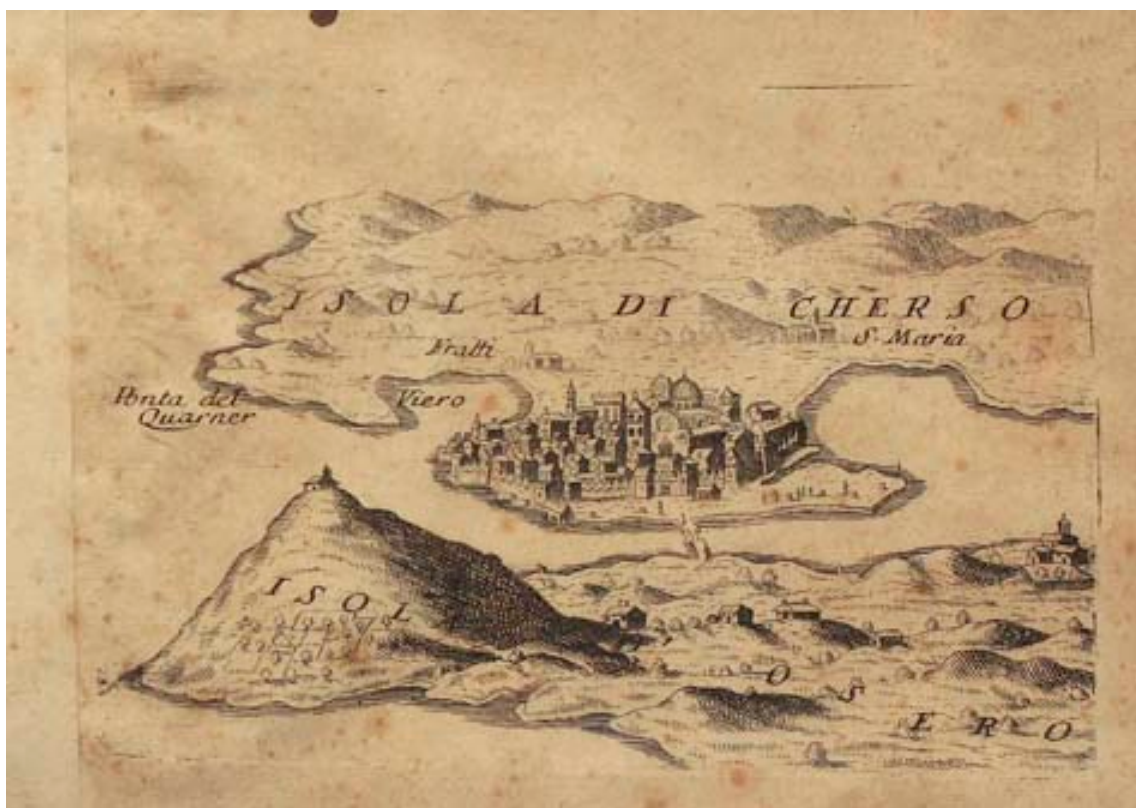 ISOLA DI CHERSO
Fratti
S. Maria
Ponta del
Quarner
Viero
ISOLA
OSERO